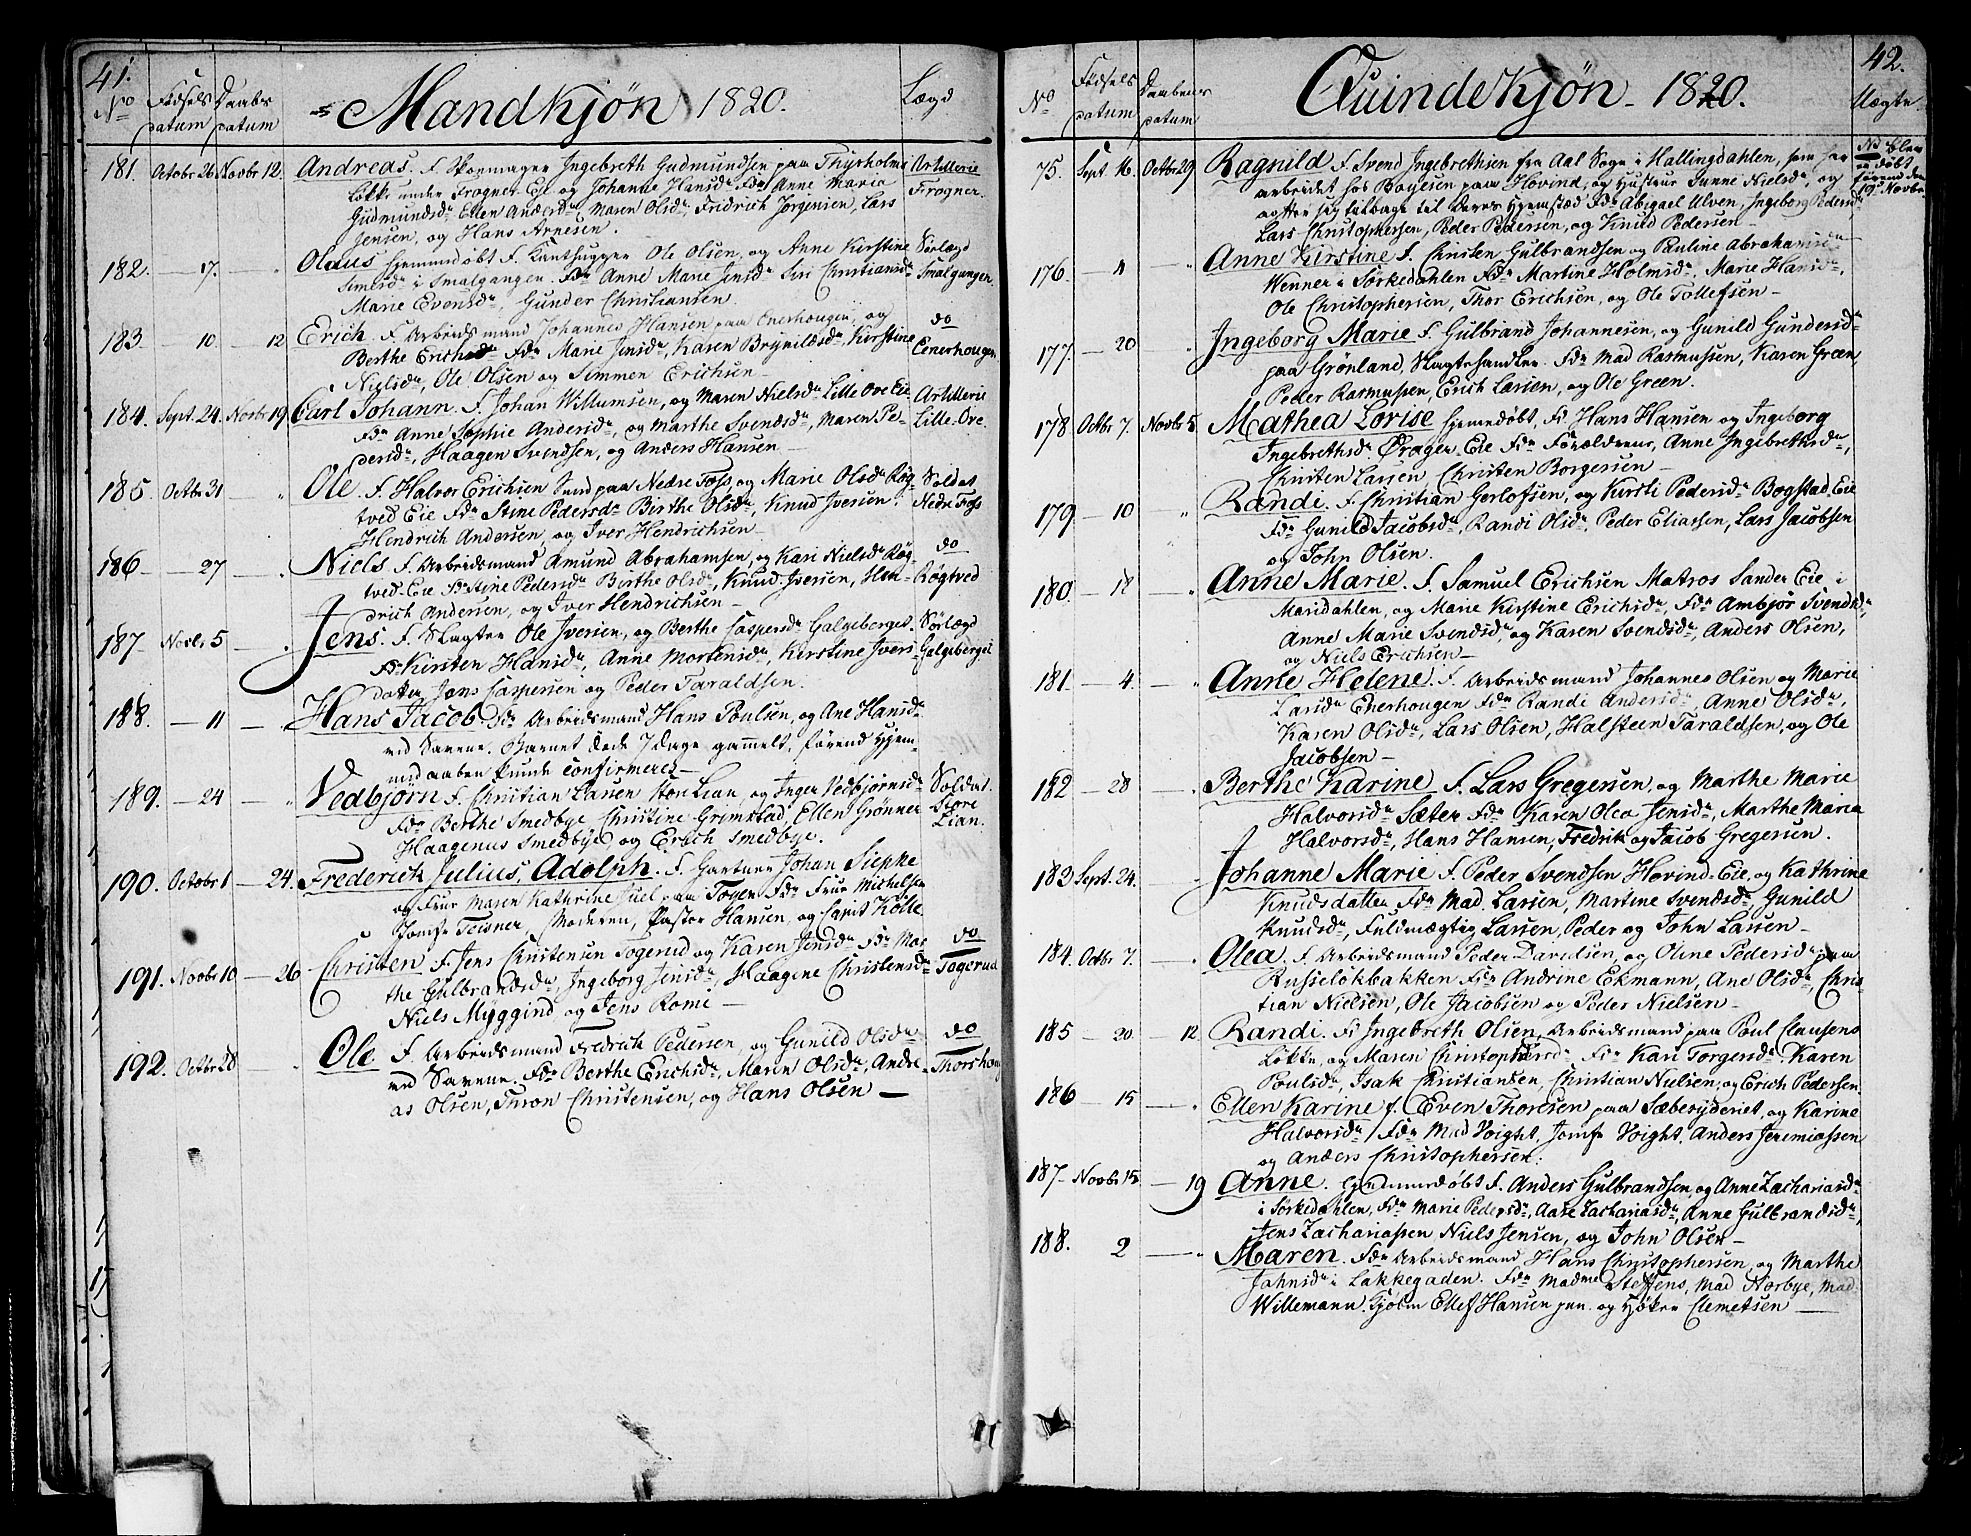 41.
No
Fødsels
datum
Daabs
datum
Mandkjøn 1820.
Lægd
181. Octobr 26 Novbr 12. Andreas. F. Skoemager Ingebreth Gudmundsen paa Thyrholms Artillerie
Løkke under Frogner Eie og Johanne Hansd. Fdr Anne Maria Frogner.
Gudmundsdr Ellen Andersdr, Maren Olsdr, Fridrich Jørgensen, Lars
Jensen, og Hans Arnesen.
182. — 17. — Olaus hjemmedøbt F. Kanthugger Ole Olsen, og Anne Kirstine Sørlægd
Simesdr i Smalgangen. Fdr Anne Marie Jensdr Siri Christiansdr Smalgangen
Marie Evensdr, Gunder Christiansen.
183 — 10 — 12 Erich. F. Arbeidsmand Johannes Hansen paa Enerhougen, og do
Berthe Erichsdr Fdr Marie Jensdr, Karen Brynildsdr, Kirstine Eenerhougen
Nielsdr, Ole Olsen og Simmen Erichsen —
184. Sept. 24. Novbr 19 Carl Johann. F. Johan Willumsen, og Maren Nielsdr Lille Ove Eie Artillerie
Fdr Anne Sophie Andersdr, og Marthe Svendsdr, Maren Pe- Lille Ove
dersdr, Haagen Svendsen, og Anders Hansen —
185. Octbr 31 — " Ole. F. Halvor Erichsen Smed paa Nedre Foss, og Marie Olsdr Røg- Soldat
tved Eie Fdr Stine Pedersdr Birthe Olsdr, Knud Iversen. Nedre Foss
Hendrich Andersen, og Iver Hendrichsen —
186 — 27 — . Niels F. Arbeidsmand Amund Abrahamsen, og Kari Nielsdr Røg- do
tved-Eie Fdr Stine Pedersdr Berthe Olsdr, Knud Iversen, Hen- Røgtved
drich Andersen, og Iver Hendrichsen —
187 Novbr 5 — . Jens. F. Slagter Ole Iversen, og Berthe Caspersdr Galgeberget. Sørlægd
Fdr Kirsten Hansdr, Anne Mortensdr, Kirstine Ivers- Galgeberget
datter Jens Caspersen og Peder Taraldsen.
188. — 11 — . Hans Jacob. Fdr Arbeidsmand Hans Poulsen, og Ane Hansdr
ved Saugene. Barnet døde 7 dage gammelt, førend Hjem-
medaaben kunde confirmeres —
189. — 24 — " Vedbjørn F. Christian Larsen Store Lian, og Inger Vedbjørnsdr Soldat
Fdr Berthe Smedbye Christine Grimstad, Ellen Grønner Store
Haagenus Smedbye, og Erich Smedbye. Lian.
190. Octobr 1 — 24. Frederich Julius, Adolph. F. Gartner Johan Siepke
og Frue Maren Kathrine Juel paa Tøyen Fdr Frue Michelsen
Jomfr Teisner, Moderen, Pastor Hansen, og Capit Kolle
191. Novbr 10 — 26 Christen F. Jens Christensen Togerud og Karen Jensdr Fdr Mar- do
the Gulbrandsdr, Ingeborg Jensdr, Haagine Christensdr Togerud
Niels Myggind og Jens Rome —
192. Octbr 28 Ole F. Arbeidsmand Fredrich Pedersen, og Gunild Olsdr do
ved Saugene. Fdr Berthe Erichsdr, Maren Olsdr, Andre- Thorshoug
as Olsen, Thron Christensen, og Hans Olsen —
42.
No
Fødsels
datum
Daabens
datum
Quindekjøn 1820.
75. Sept. 16. Octbr 29 Ragnild F. Svend Ingebrethsen fra Aal Sogn i Hallingdahlen, som har
arbeidet hos Boyesen paa Hovind, og Hustrue Gunne Nielsdr, og
agter sig tilbage til deres Hjemstæd Fdr Abigael Ulven, Ingeborg Pedersdr
Lars Christophersen, Peder Pedersen, og Knud Pedersen —
No Blev
ei døbt
førend den
19d Novbr
176. " Anne Kirstine F. Christen Gulbrandsen og Pauline Abrahamsdr
Wenner i Sørkedahlen Fdr Martine Holmsdr, Marie Hansdr,
Ole Christophersen, Thor Erichsen, og Ole Tollefsen —
177. — 20 " Ingeborg Marie F. Gulbrand Johannesen, og Gunild Gundersdr
paa Grønland, Slagtehandler. Fdr Mad Rasmussen, Karen Green,
Peder Rasmussen, Erich Larsen, og Ole Green.
178 Octbr 7. Novbr 5 Mathea Lovise hjemedøbt, F. Hans Hansen og Ingeborg
Ingebrethsdr Øvager-Eie Fdr Forældrene, Anne Ingebrethsdr,
Christen Larsen Christen Borgersen —
179. — 10 " Randi. F. Christian Gerlofsen, og Kirsti Pedersdr Bogstad Eie
Fdr Gunild Jacobsdr, Randi Olsdr, Peder Eliassen, Lars Jacobsen
og John Olsen.
180. — 12 — " Anne Marie. F. Samuel Erichsen Matros Sander Eie i
Maridahlen, og Marie Kirstine Erichsdr, Fdr Ambjør Svendsdr,
Anne Marie Svendsdr, og Karen Svendsdr, Anders Olsen,
og Niels Erichsen —
181. — 4. — " Anne Helene. F. Arbeidsmand Johannes Olsen og Marie
Larsdr Enerhougen Fdr Randi Andersdr, Anne Olsdr,
Karen Olsdr, Lars Olsen, Halsteen Taraldsen, og Ole
Jacobsen —
182 — 28 — . Berthe Karine F. Lars Gregersen, og Marthe Marie
Halvorsdr Sæter Fdr Karen Olea Jensdr, Marthe Maria
Halvorsdr, Hans Hansen, Fredrik og Jacob Gregersen.
183 Sept. 24. Johanne Marie F. Peder Svendsen Hovind-Eie, og Kathrine
Knudsdatter Fdr Mad. Larsen, Martine Svendsdr, Gunild
Knudsdr, Fuldmægtig Larsen, Peder og John Larsen —
184. Octbr 7. — . Olea. F. Arbeidsmand Peder Davidsen, og Oline Pedersdr paa
Russeløkbakken Fdr Andrine Ekmann, Ane Olsdr, Chris-
tian Nielsen, Ole Jacobsen og Peder Nielsen —
185 — 20 — 12 Randi. F. Ingebreth Olsen, Arbeidsmand paa Poul Clausens
Løkke, og Maren Christophersdr Fdr Kari Torgersdr, Karen
Poulsdr, Isak Christiansen, Christian Nielsen, og Erich Pedersen.
186 — 15 — . Ellen Karine f. Even Thoresen paa Sæbesyderiet, og Karine
Halvorsdr, Fdr Mad Voight, Jomfr Voight, Anders Jeremiassen
og Anders Christophersen.
187 — Novbr 15 — 19 Anne. Hjemmedøbt F. Anders Gulbrandsen, og Anne Zachariasdr
i Sørkedahlen, Fdr Marie Pedersdr, Aase Zachariasdr, Anne Gulbrandsdr,
Jens Zachariassen Niels Jensen, og John Olsen —
188. 2 — " Maren. Fdr Arbeidsmand Hans Christophersen, og Marthe
Jahnsdr i Lakkegaden. Fdr Madme Steffens, Mad Norbye, Mad.
Willemann. Gjørtl Ellef Hansen jun. og Høker Clemetsen —